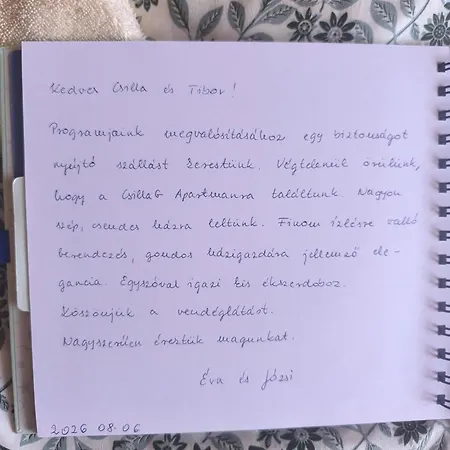 Kedves Csilla és Tibor!
Programjaink megvalósításához egy biztonságot
nyújtó szállást kerestünk. Végtelenül örülünk,
hogy a Csilla& Apartmanra találtunk. Nagyon
szép, csendes házra leltünk. Finom ízlésre valló
berendezés, gondos házigazdára jellemző ele-
gancia. Egyszóval igazi kis ékszerdoboz.
Köszönjük a vendéglátást.
Nagyszerűen éreztük magunkat.
Éva és Józsi
2026 08-06